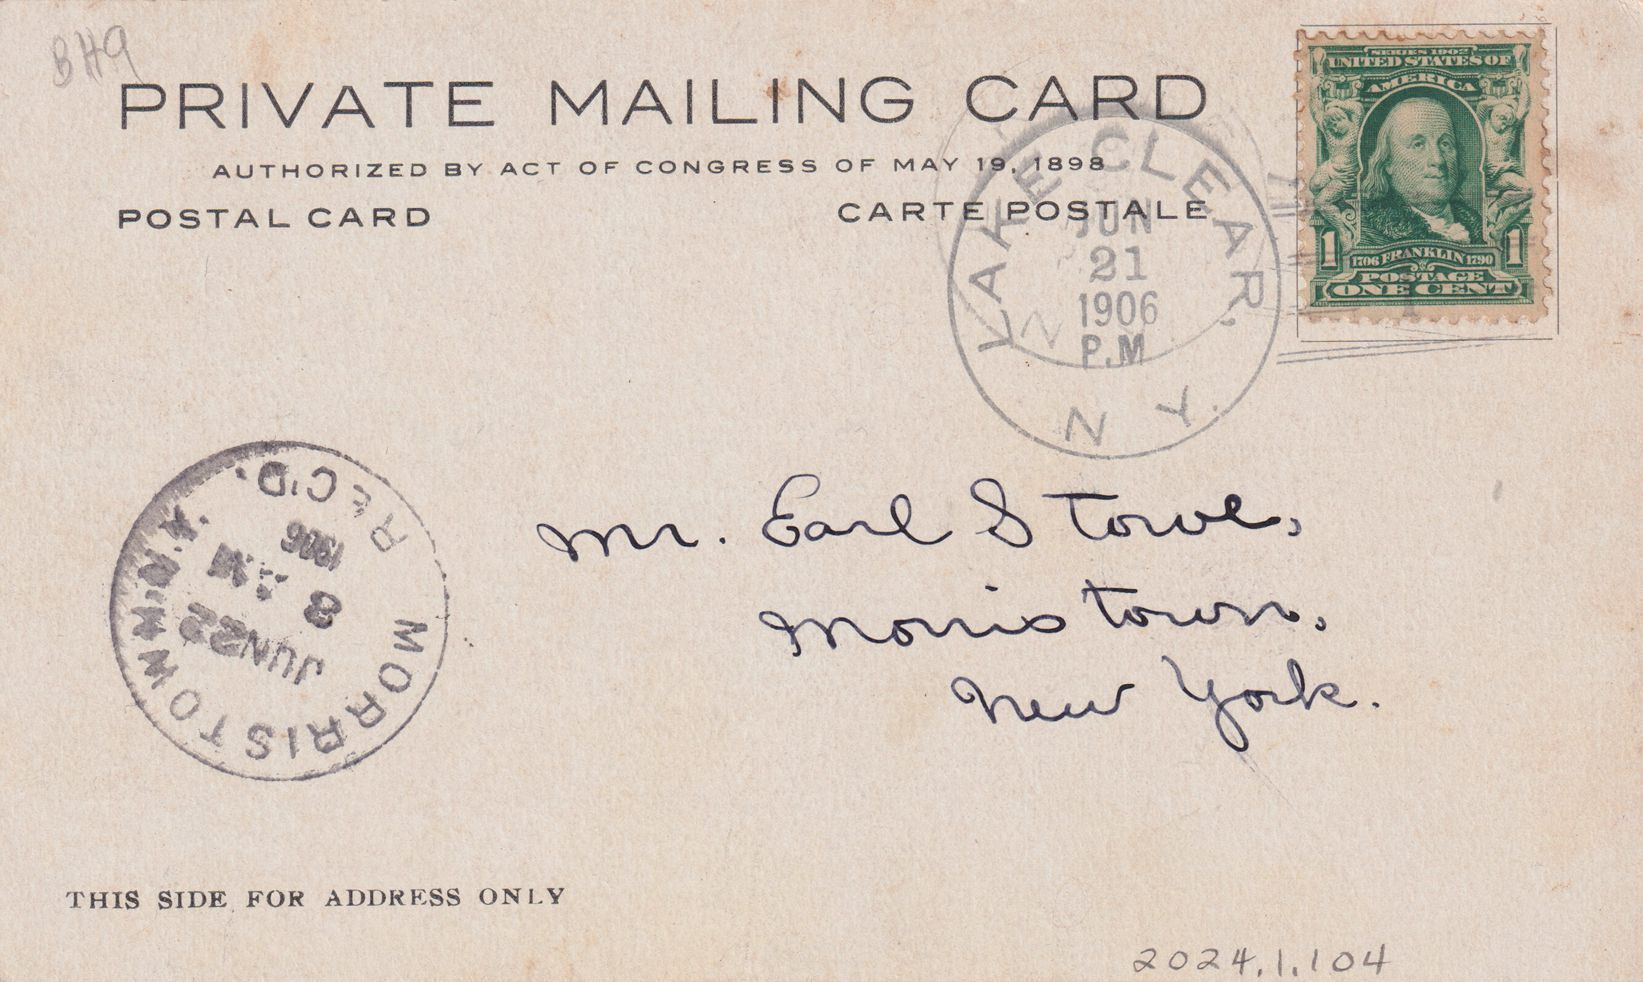 BH9
PRIVATE MAILING CARD
AUTHORIZED BY ACT OF CONGRESS OF MAY 19, 1898
POSTAL CARD
CARTE POSTALE
SERIES 1902
UNITED STATES OF
AMERICA
1 1706 FRANKLIN 1790 1
POSTAGE
ONE CENT
LAKE CLEAR,
JUN
21
1906
P.M
N.Y.
MORRISTOWN, N.Y.
JUN 22
8
1906
REC'D.
Mr. Earl Stowe,
Morristown,
New York.
THIS SIDE FOR ADDRESS ONLY
2024.1.104